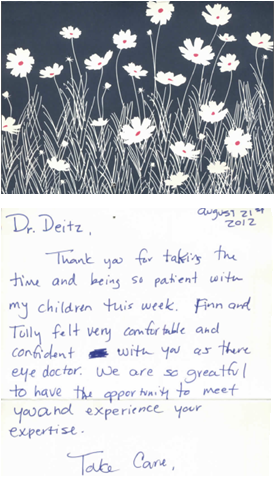 august 21st
2012
Dr. Deitz,
Thank you for taking the
time and being so patient with
my children this week. Finn and
Tully felt very comfortable and
confident with you as there
eye doctor. We are so greatful
to have the opportunity to meet
you and experience your
expertise.
Take Care,